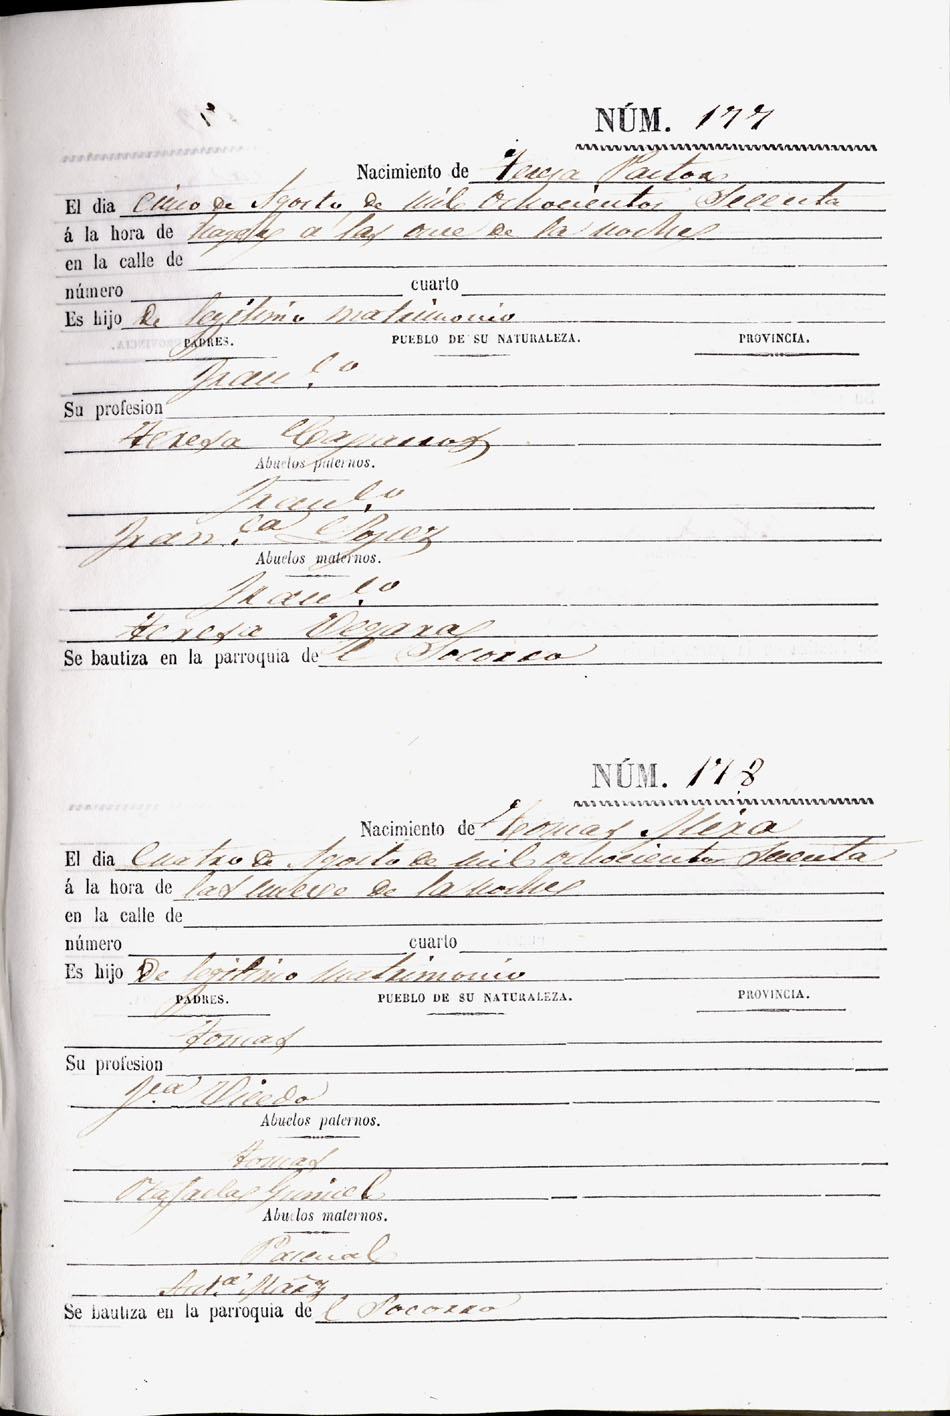 NÚM. 177
Nacimiento de Teresa Pastor
El dia cinco de Agosto de mil ochocientos Secenta
á la hora de a las once de la noche
en la calle de
número cuarto
Es hijo De legitimo matrimonio
PADRES. PUEBLO DE SU NATURALEZA. PROVINCIA.
Franco
Su profesion
Teresa
Abuelos paternos.
Franco
Fran.ca Lopez
Abuelos maternos.
Franco
Teresa Vegara
Se bautiza en la parroquia de l Socorro
NÚM. 178
Nacimiento de Tomas Mira
El dia Cuatro de Agosto de mil ochocientos Secenta
á la hora de las nueve de la noche
en la calle de
número cuarto
Es hijo De legitimo matrimonio
PADRES. PUEBLO DE SU NATURALEZA. PROVINCIA.
Tomas
Su profesion
Jfa Vicedo
Abuelos paternos.
Tomas
Rafaela
Abuelos maternos.
Pascual
Ant.a
Se bautiza en la parroquia de l Socorro